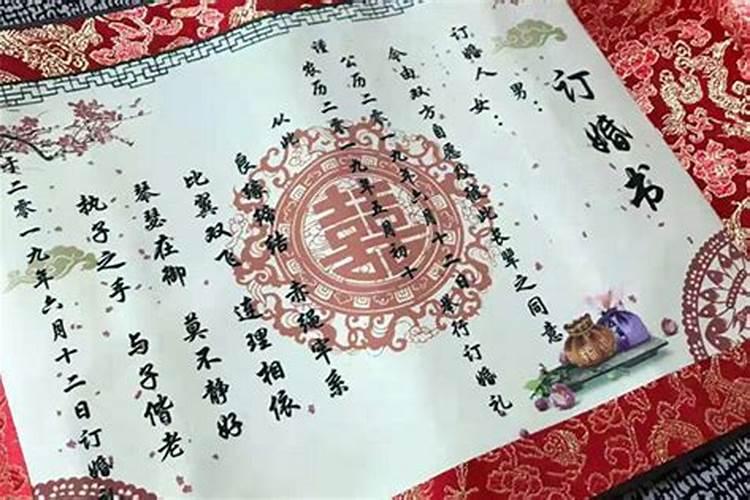 订婚书
订婚人 男：
女：
今由双方自愿及征彼长辈之同意
公历二零一九年六月十二日举行订婚礼
谨农历二零一九年五月初十
从此
良缘缔结 赤绳牢系
比翼双飞 连理相依
琴瑟在御 莫不静好
执子之手 与子偕老
于二零一九年六月十二日订婚